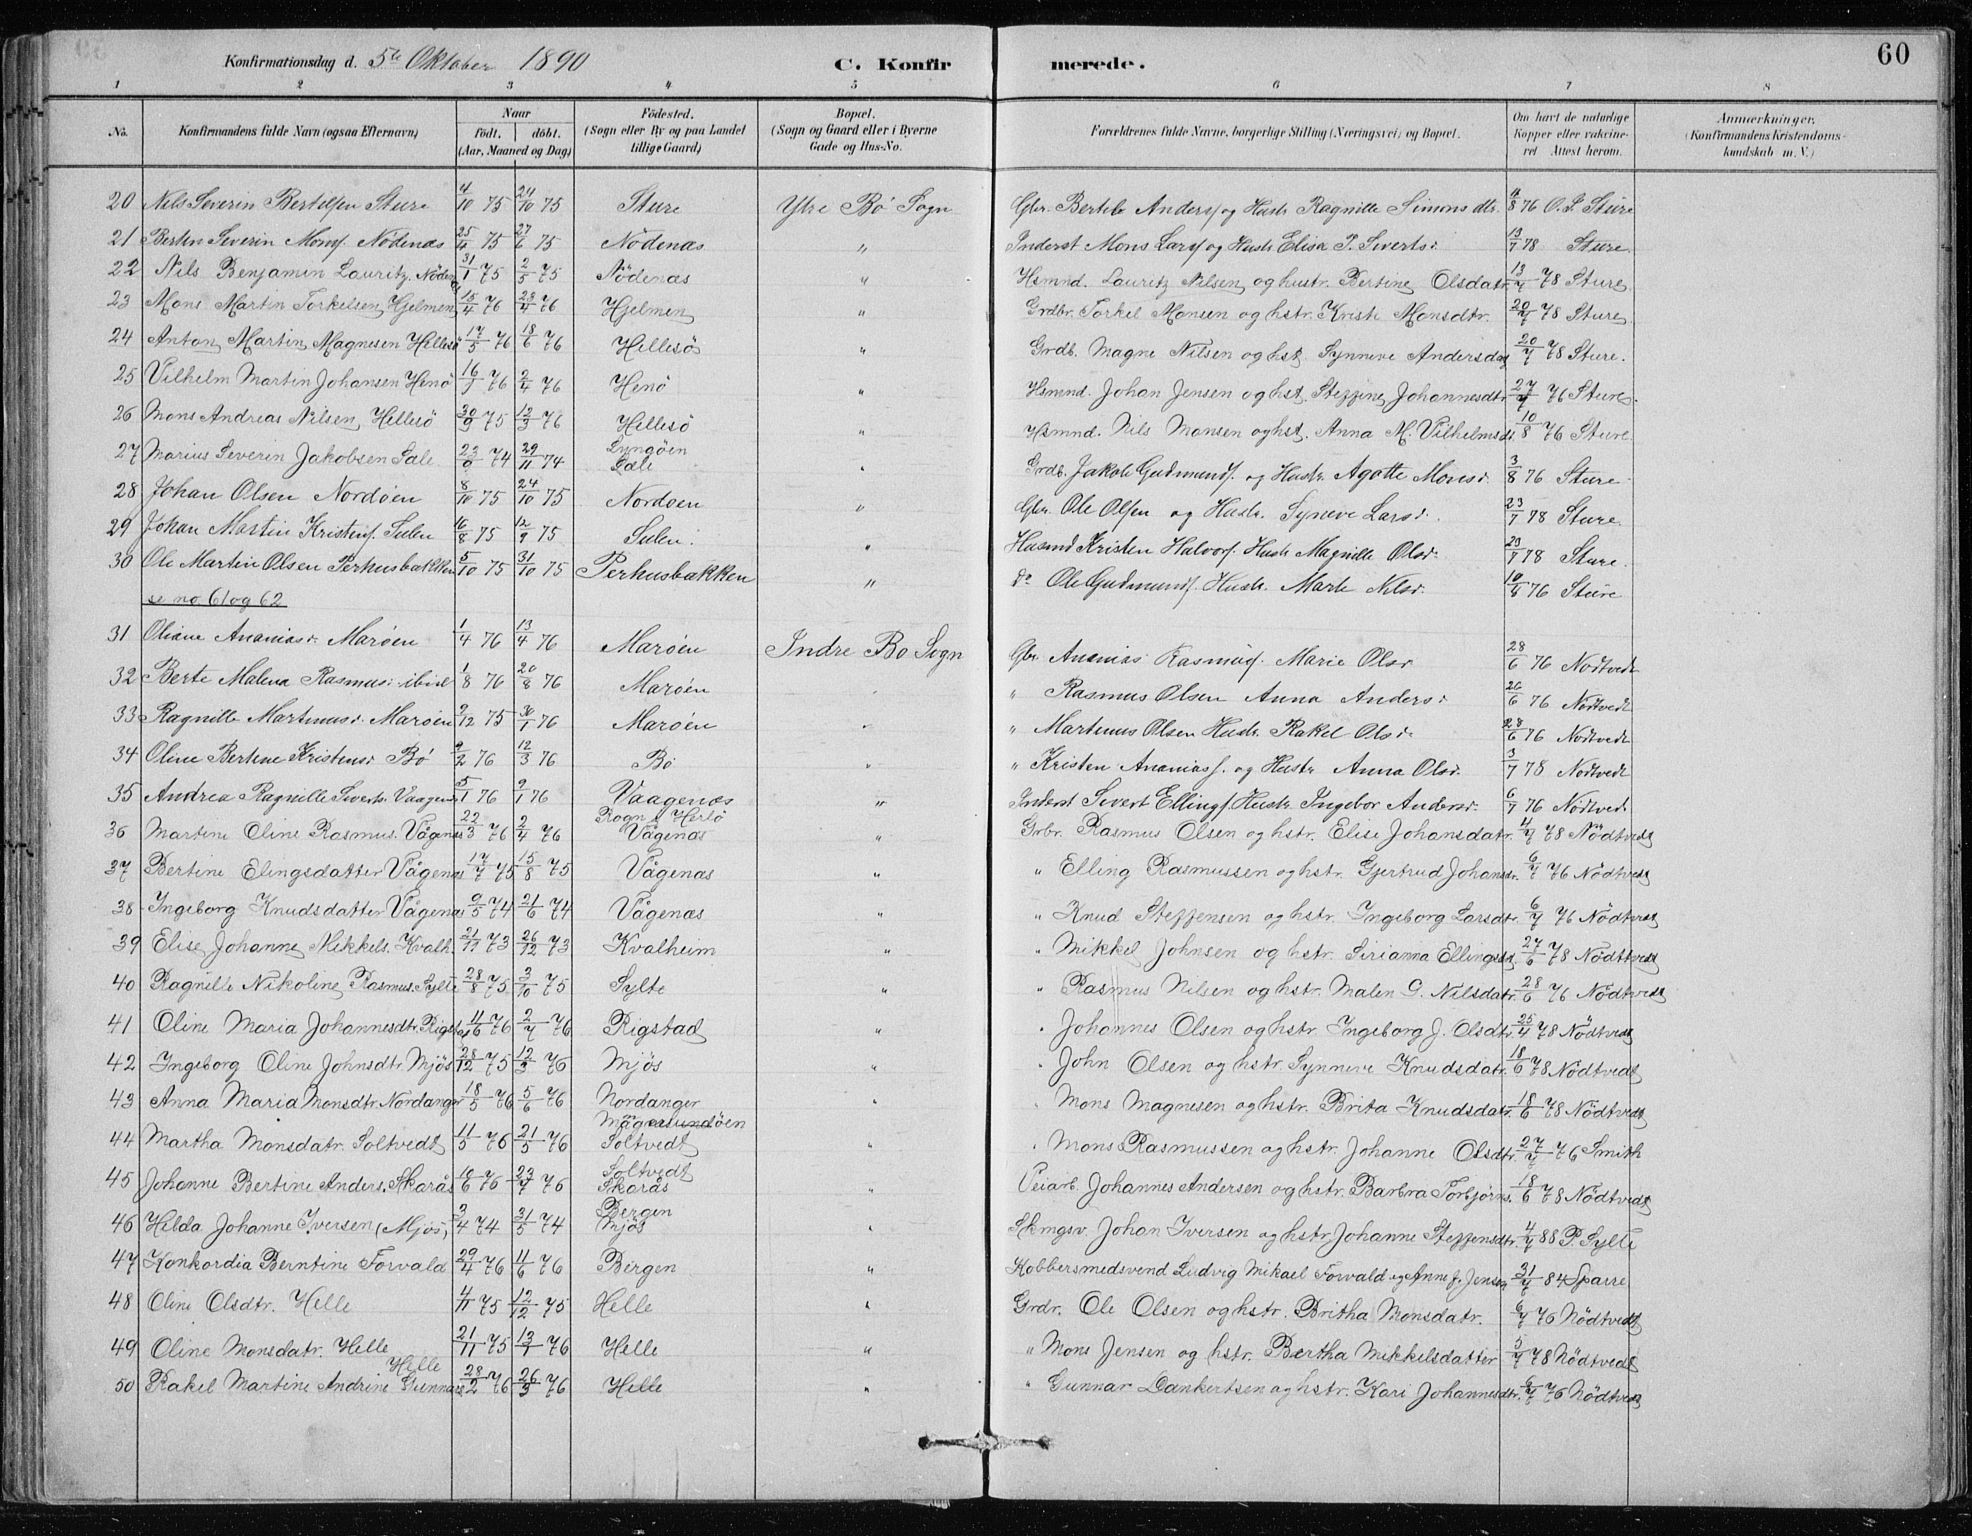 Konfirmationsdag d. 5te Oktober 1890 C. Konfirmerede. 60
1 2 3 4 5 6 7 8
No. Konfirmandens fulde Navn (ogsaa Efternavn) Naar födt. döbt. (Aar, Maaned og Dag) Födested. (Sogn eller By og paa Landet tillige Gaard) Bopæl. (Sogn og Gaard eller i Byerne Gade og Hus-No. Forældrenes fulde Navne, borgerlige Stilling (Næringsvei) og Bopæl. Om havt de naturlige Kopper eller vakcineret Attest herom. Anmærkninger. (Konfirmandens Kristendomskundskab m. V.)
20 Nils Severin Bertelsen Sture 4/10 75 24/10 75 Sture Ytre Bö Sogn Gbr. Bertel Anders. og Hustr Ragnille Simonsdtr. 76 O. S. Sture
21 Berten Severin Mons. Nödenæs 25/4 75 27/6 75 Nödenæs " Inderst Mons Lars. og Hustr Elisa P. Siverts: 13/7 78 Sture
22 Nils Benjamin Lauritz. Nödenæs 31/1 75 2/5 75 Nödenæs " Hsmnd. Lauritz Nilsen og hustr. Bertine Olsdatr. 13/7 78 Sture
23 Mons Martin Torkelsen Hjelmen 15/4 76 23/4 76 Hjelmen " Grdbr. Torkel Monsen og hstr. Kristi Monsdtr. 20/7 78 Sture
24 Anton Martin Magnesen Hillesö 17/5 76 18/6 76 Hillesö " Grdb. Magne Nilsen og hst. Synneve Andersdtr 20/7 78 Sture.
25 Vilhelm Martin Johansen Henö 16/1 76 2/4 76 Henö " Hsmnd. Johan Jensen og hst. Steffine Johannesdtr. 27/7 76 Sture.
26 Mons Andreas Nilsen Hellesö 30/9 75 12/3 76 Hellesö " Hsmnd. Nils Monsen og hst. Anna M. Vilhelmsd. 10/8 76 Sture
27 Marius Severin Jakobsen Sæle 23/9 74 29/11 74 Lyngöen Sæle " Grdb. Jakob Gudmunds. og Hustr. Agotte Monsd 3/8 76 Sture
28 Johan Olsen Nordöen 8/10 75 24/10 75 Nordöen " Gbr. Ole Olsen og Hustr. Syneve Larsd. 23/7 78 Sture
29 Johan Martin Kristens. Sulen 16/8 75 12/9 75 Sulen. " Husmd Kristen Halvors. Hustr Magnille Olsd. 23/7 78 Sture.
30 Ole Martin Olsen Perhusbakken 5/10 75 31/10 75 Perhusbakken " do Ole Gudmunds. Hustr. Marte Nilsd. 76 Sture
se no. 61 og 62
31 Oliane Ananiasd. Maröen 1/4 76 13/4 76 Maröen Indre Bö Sogn Gbr. Ananias Rasmus. Marie Olsd 28/6 76 Nödtvedt
32 Berte Malena Rasmusd. ibid 1/8 76 20/8 76 Maröen " " Rasmus Olsen Anna Andersd 26/6 76 Nödtvedt
33 Ragnille Martinusd. Maröen 9/12 75 30/1 76 Maröen " " Martinus Olsen Hustr. Rakel Olsd. 28/6 76 Nödtvedt
34 Oline Bertine Kristensd Bö 9/2 76 12/3 76 Bö " " Kristen Ananias. og Hustr Anna Olsd. 3/7 78 Nödtvedt
35 Andrea Ragnille Siverts. Vaagenæs 5/1 76 9/1 76 Vaagenæs " Inderst Sivert Ellings. Hustr. Ingebor Andersd. 6/7 76 Nödtvedt
36 Martine Oline Rasmus. Vågenæs 22/3 76 2/4 76 Rogn i Herlö Vågenæs " Grbr. Rasmus Olsen og hstr. Elise Johansdatr. 4/7 78 Nödtvedt
37 Bertine Elingsdatter Vågenæs 17/7 75 15/8 75 Vågenæs " " Elling Rasmussen og hstr. Gjertrud Johansd. 6/7 76 Nödtvedt
38 Ingeborg Knudsdatter Vågenæs 9/5 74 21/6 74 Vågenæs " " Knud Steffensen og hstr. Ingeborg Larsdtr. 6/7 76 Nödtvedt
39 Elise Johanne Mikkels. Kvalh. 21/11 73 26/12 73 Kvalheim " " Mikkel Johnsen og hstr. Sirianna Ellingsd. 27/6 78 Nödtvedt
40 Ragnille Nikoline Rasmus. Sylte 28/8 75 3/10 75 Sylte " " Rasmus Nilsen og hstr. Malen G. Nilsdatr. 28/6 76 Nödtvedt
41 Oline Maria Johannesdtr. Rigstad 11/6 76 2/7 76 Rigstad " " Johannes Olsen og hstr. Ingeborg J. Olsdtr. 25/4 78 Nödtvedt
42 Ingeborg Oline Johnsdtr. Mjös 28/12 75 12/3 76 Mjös " " John Olsen og hstr. Synneve Knudsdatr. 18/6 78 Nödtvedt
43 Anna Maria Monsdtr. Nordanger 18/5 76 5/6 76 Nordanger " " Mons Magnesen og hstr. Brita Knudsdatr. 18/6 78 Nödtvedt
44 Martha Monsdatr. Soltvedt 11/5 76 21/5 76 Soltvedt " " Mons Rasmussen og hstr. Johanne Olsdtr. 27/7 76 Smith
45 Johanne Bertine Anders. Skarås 18/6 76 23/7 76 Soltvedt Skarås " Veiarb. Johannes Andersen og hstr. Barbra Torbjörns. 18/6 78 Nödtvedt
46 Hilda Johanne Iversen (Mjös) 3/4 74 31/5 74 Bergen Mjös " Skmgsv. Johan Iversen og hstr. Johanne Steffensdtr. 4/7 88 P. Sylte
47 Konkordia Berntine Forvald 29/4 76 11/6 76 Bergen " Kobbersmedsvend Ludvig Mikael Forvald og Anne J. Jensen 31/7 84 Sparre
48 Oline Olsdtr. Helle 4/11 75 12/12 75 Helle " Grdr. Ole Olsen og hstr. Britha Monsdatr. 6/7 76 Nödtvedt
49 Oline Monsdatr. Helle 21/11 75 13/1 76 Helle " " Mons Jensen og hstr. Bertha Mikkelsdatter 5/7 78 Nödtvedt
50 Rakel Martine Andrine Gunnars Helle 28/2 76 26/3 76 Helle " " Gunnar Dankertsen og hstr. Kari Johannesdtr. 6/7 76 Nödtvedt